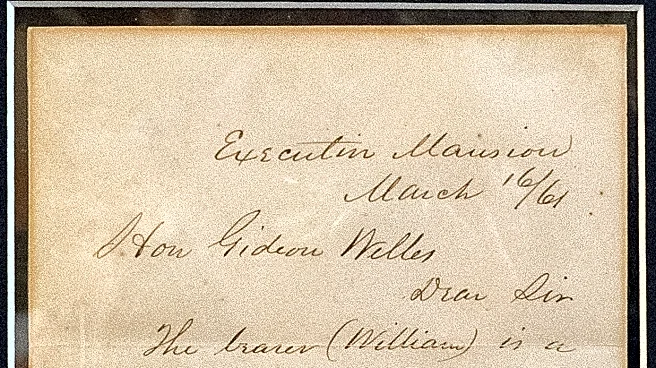 Executive Mansion
March 16/61
Hon Gideon Welles
Dear Sir
The bearer (William) is a